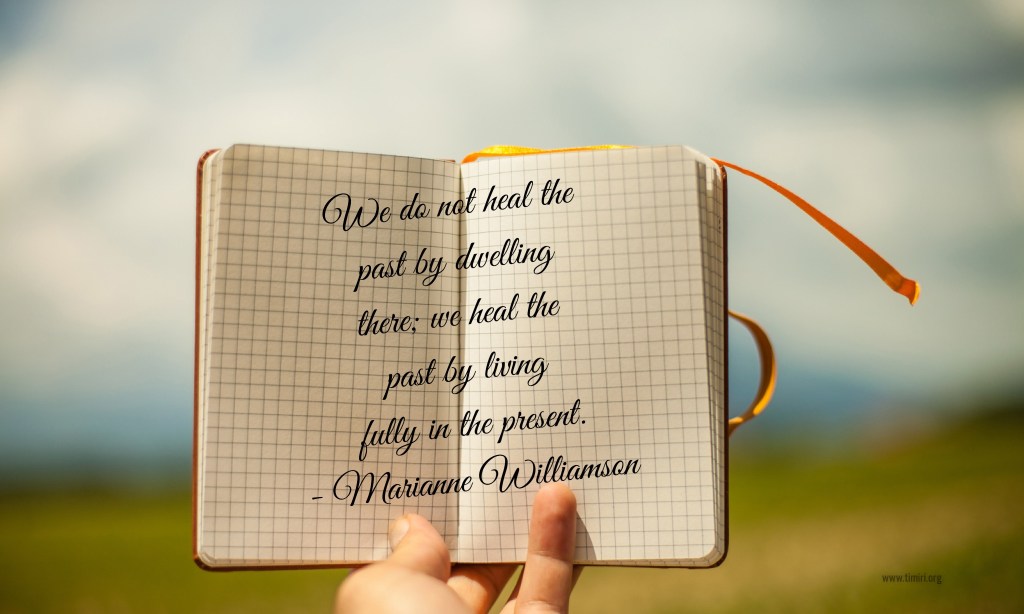 We do not heal the
past by dwelling
there; we heal the
past by living
fully in the present.
- Marianne Williamson
www.timiri.org